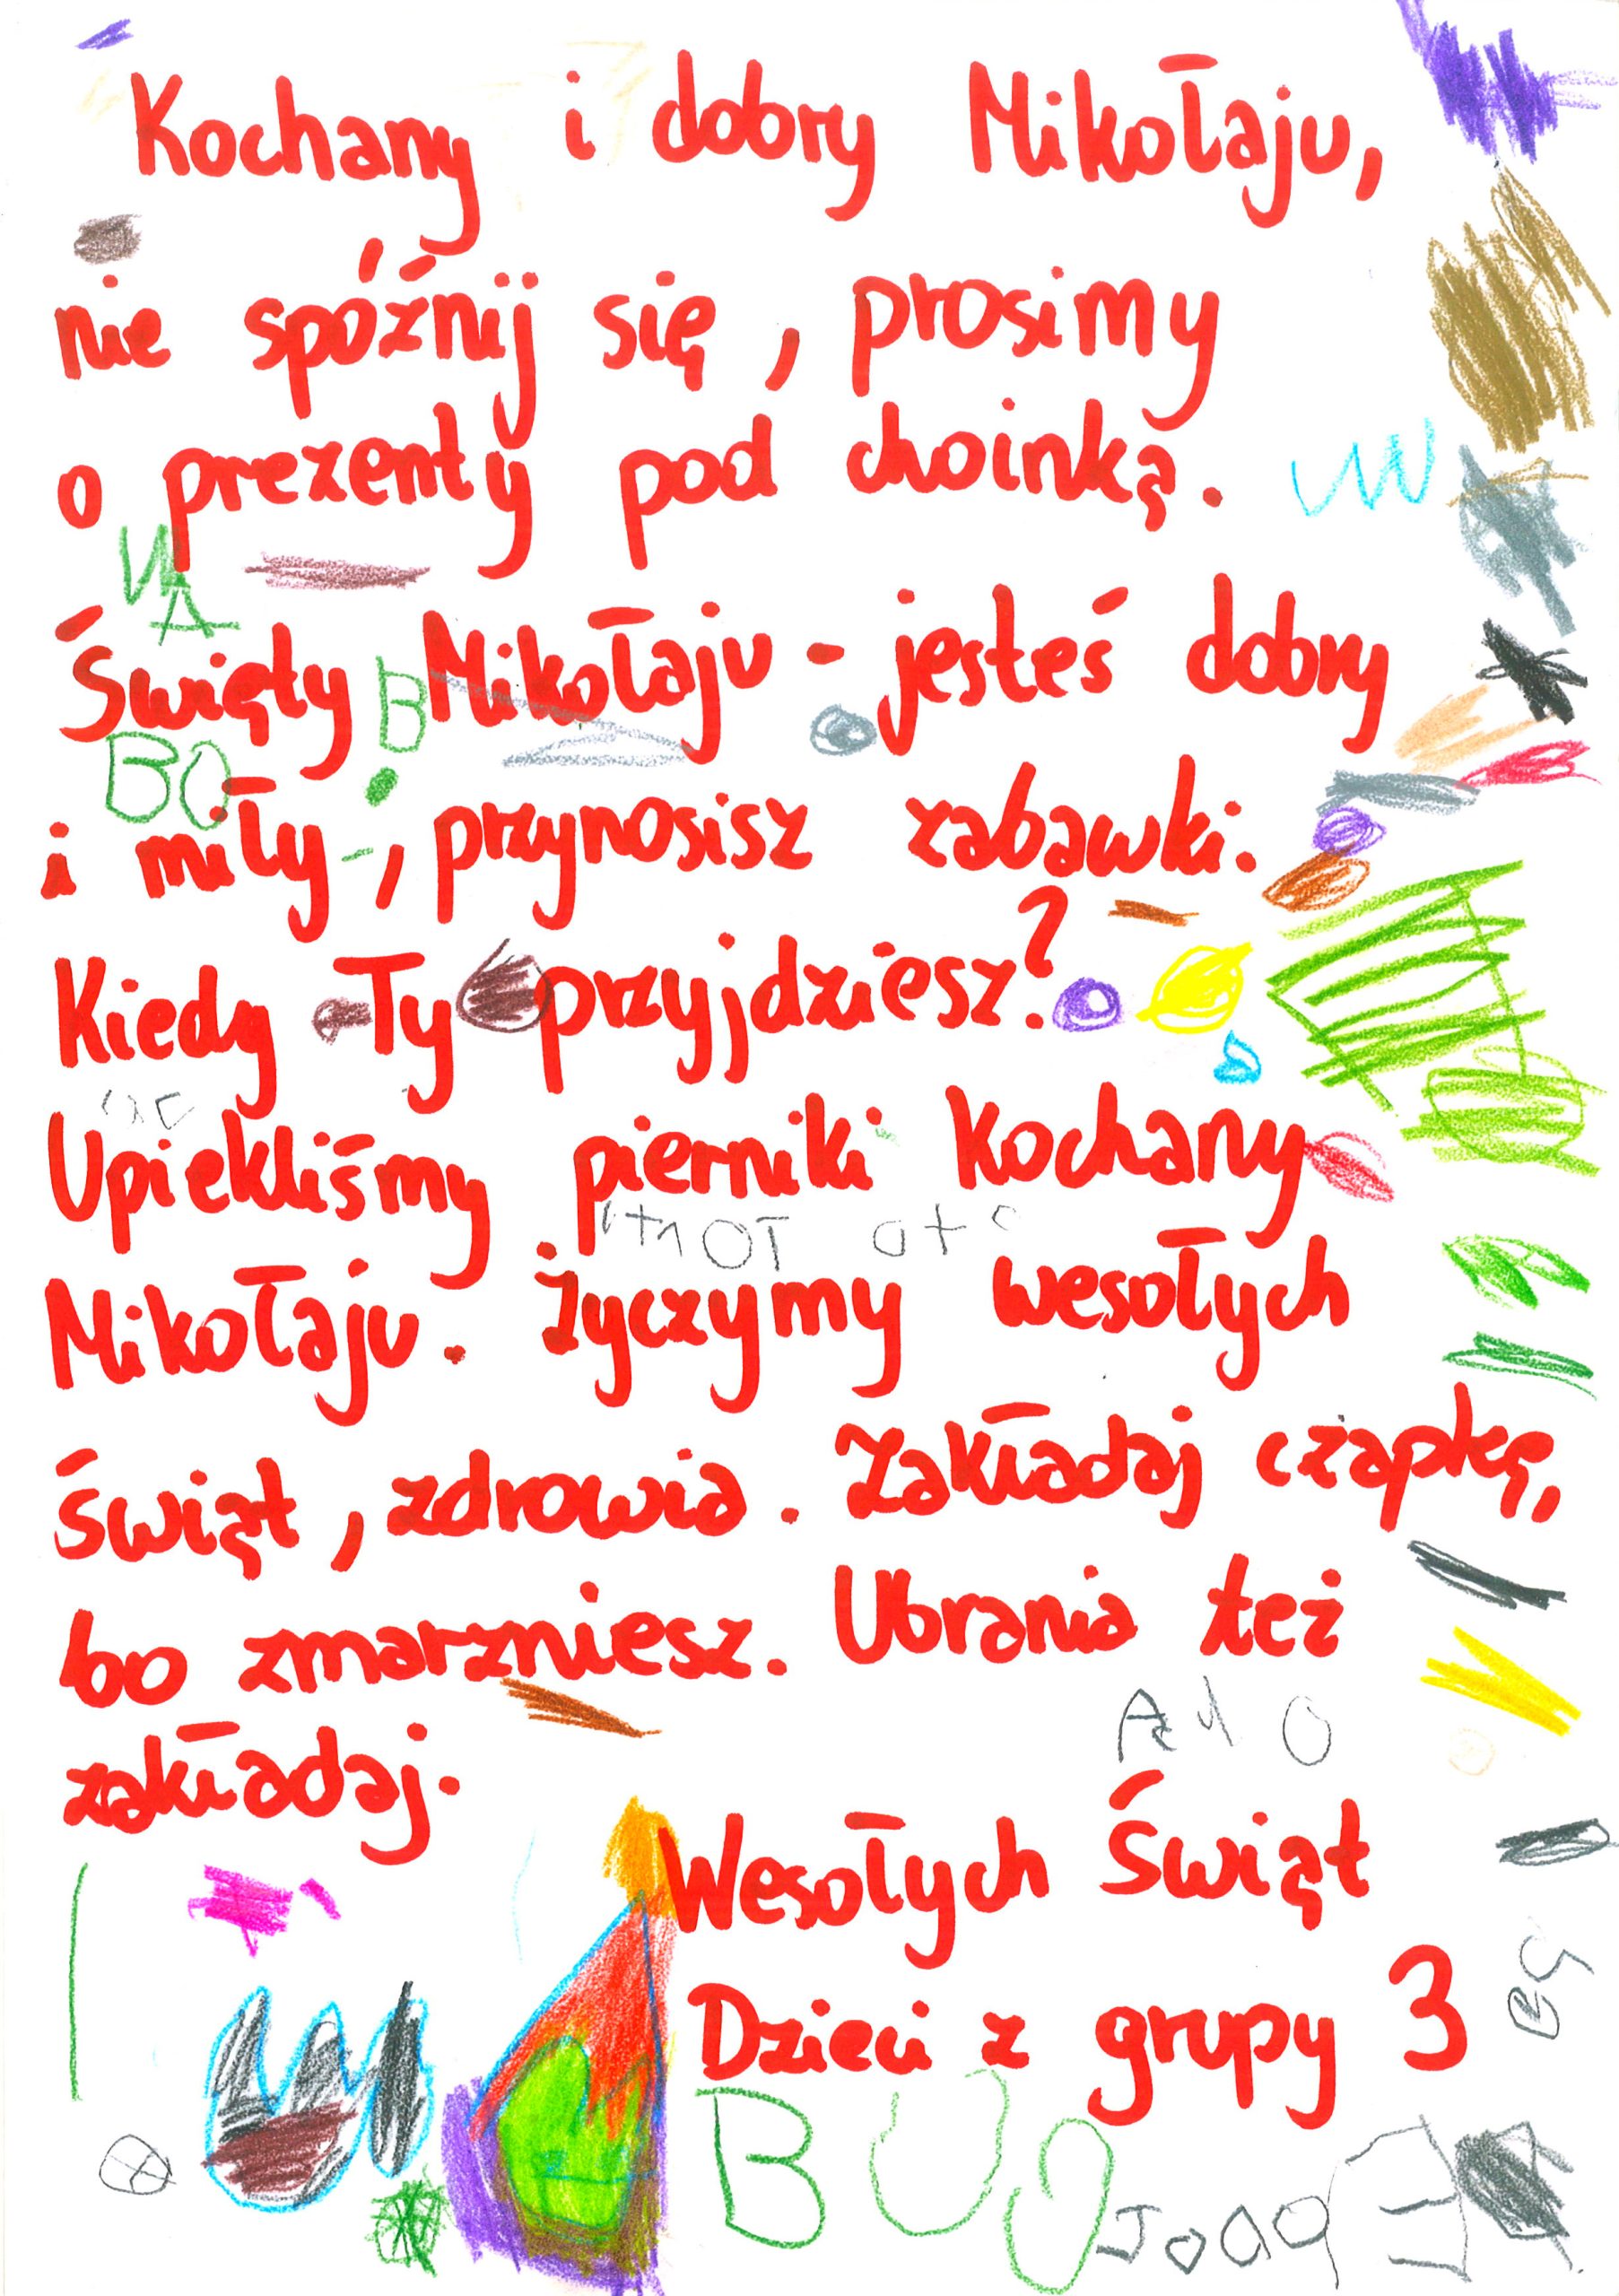 Kochany i dobry Mikołaju,
nie spóźnij się, prosimy
o prezenty pod choinką.
W
WA
Święty Mikołaju - jesteś dobry
B
BO
i miły, przynosisz zabawki.
Kiedy Ty przyjdziesz?
Upiekliśmy pierniki Kochany
Mikołaju. Życzymy wesołych
Świąt, zdrowia. Zakładaj czapkę,
bo zmarzniesz. Ubrania też
zakładaj.
Wesołych Świąt
Dzieci z grupy 3